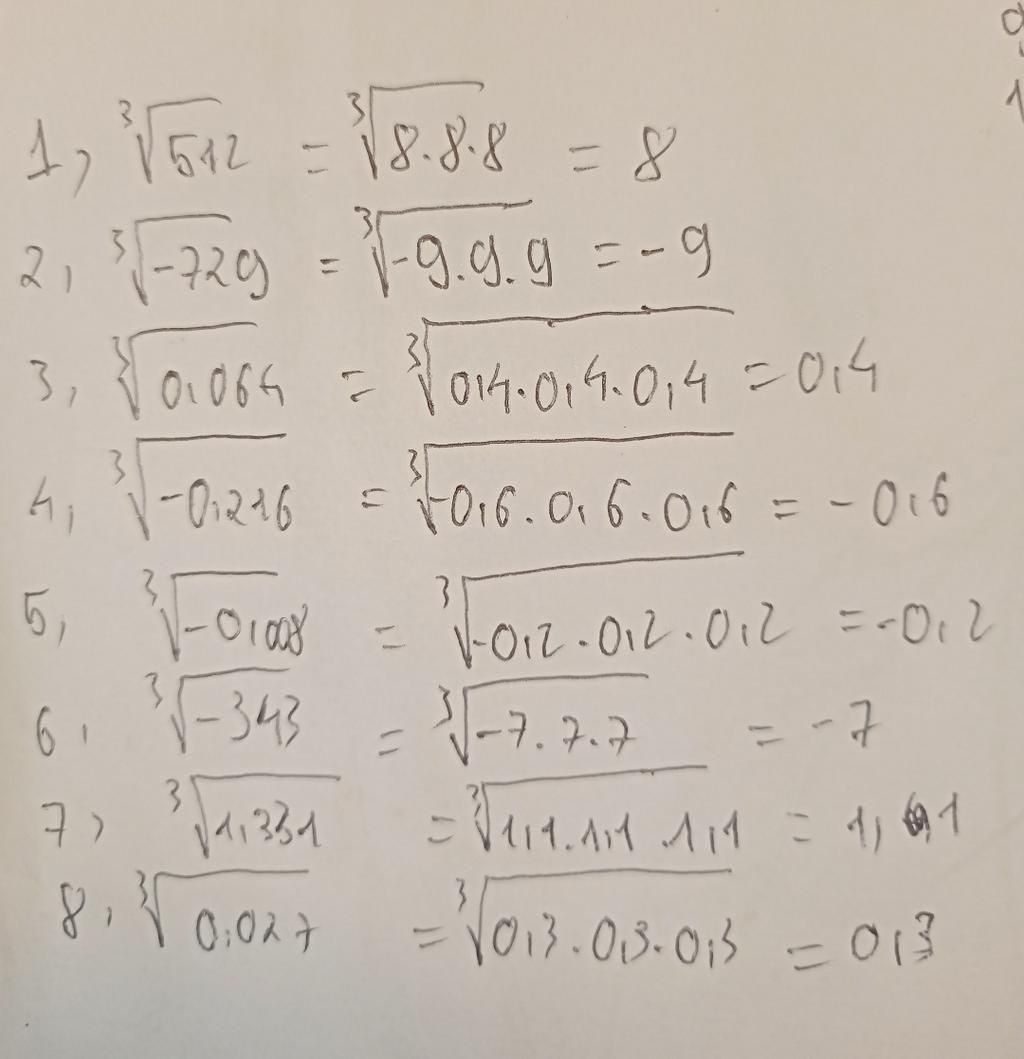 1, ³√512 = ³√8.8.8 = 8
2, ³√-729 = ³√-9.9.9 = -9
3, ³√0,064 = ³√0,4.0,4.0,4 = 0,4
4, ³√-0,216 = ³√-0,6.0,6.0,6 = -0,6
5, ³√-0,008 = ³√-0,2.0,2.0,2 = -0,2
6, ³√-343 = ³√-7.7.7 = -7
7, ³√1,331 = ³√1,1.1,1.1,1 = 1,1
8, ³√0,027 = ³√0,3.0,3.0,3 = 0,3